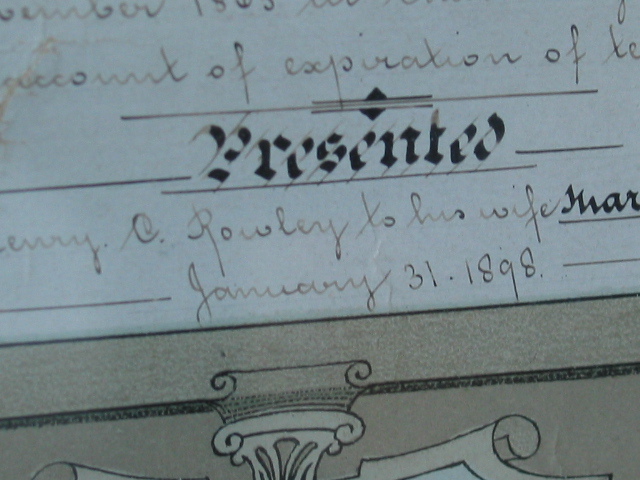 vember 1863
account of expiration of te
Presented
enry. C. Rowley to his wife Mar
January 31. 1898.